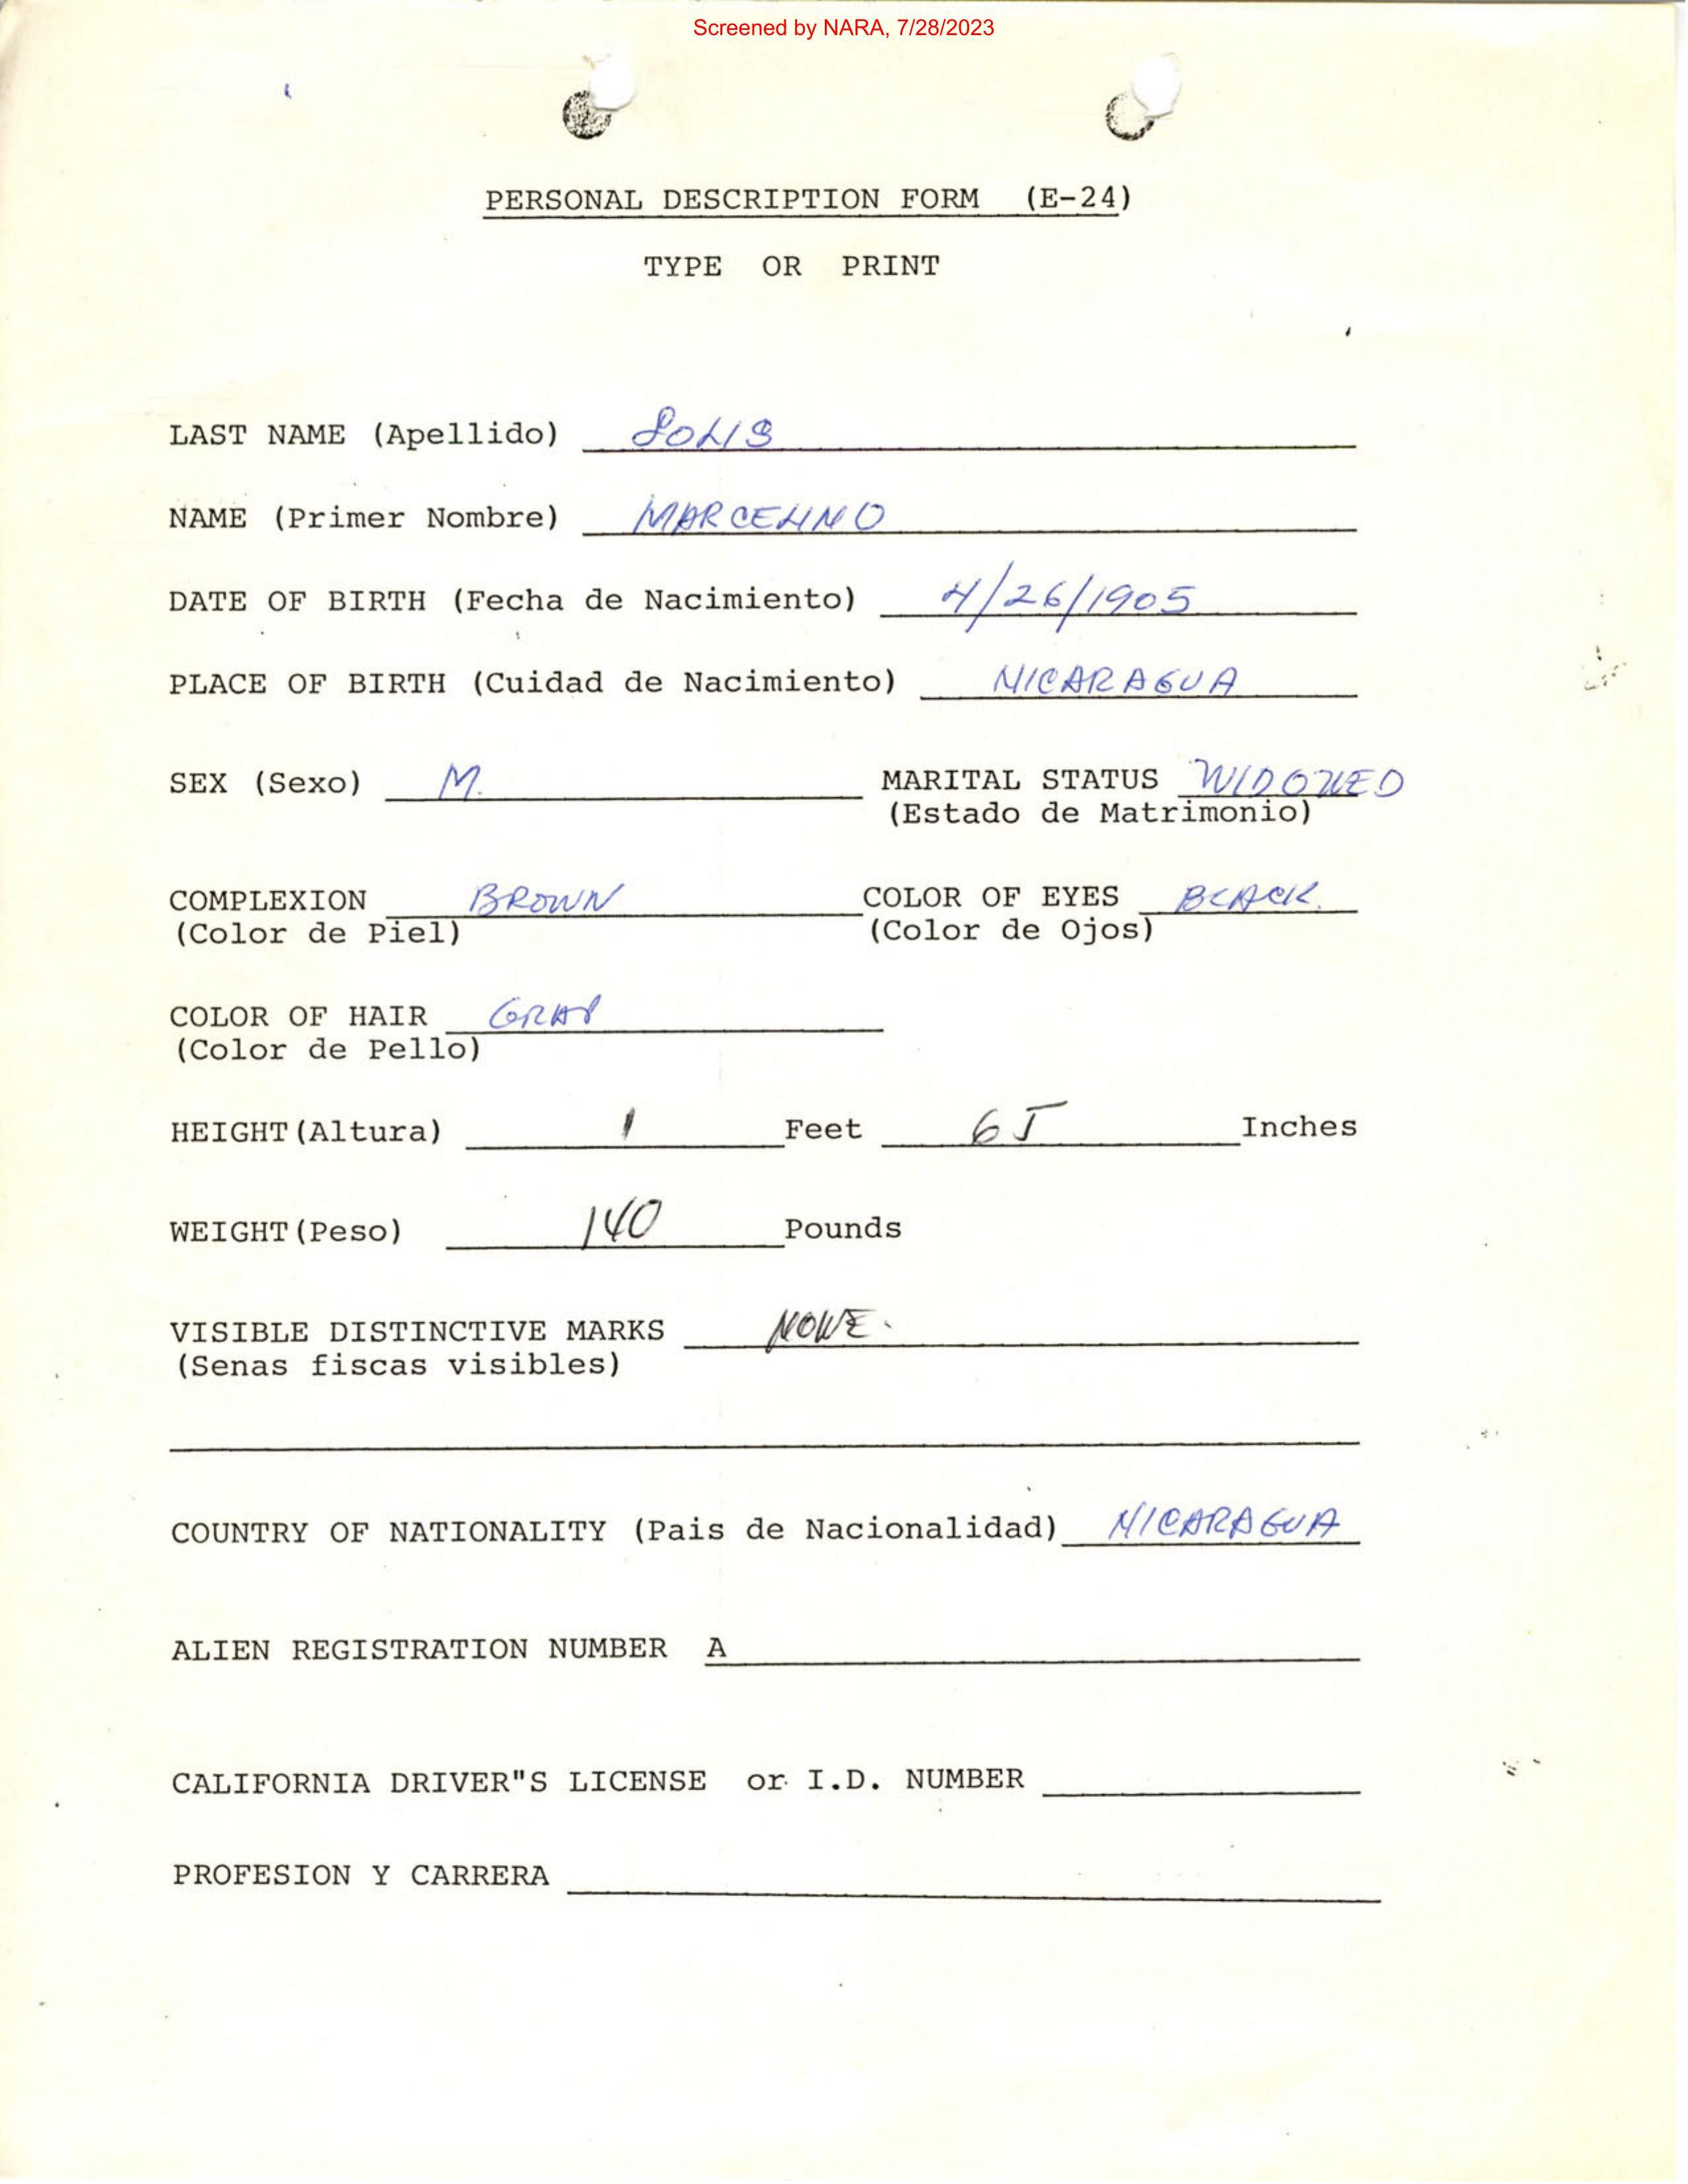 Screened by NARA, 7/28/2023
PERSONAL DESCRIPTION FORM (E-24)
TYPE OR PRINT
LAST NAME (Apellido) SOLIS
NAME (Primer Nombre) MARCELINO
DATE OF BIRTH (Fecha de Nacimiento) 4/26/1905
PLACE OF BIRTH (Cuidad de Nacimiento) NICARAGUA
SEX (Sexo) M. MARITAL STATUS WIDOWED
(Estado de Matrimonio)
COMPLEXION BROWN COLOR OF EYES BLACK.
(Color de Piel) (Color de Ojos)
COLOR OF HAIR GRAY
(Color de Pello)
HEIGHT(Altura) 1 Feet 65 Inches
WEIGHT(Peso) 140 Pounds
VISIBLE DISTINCTIVE MARKS NONE.
(Senas fiscas visibles)
COUNTRY OF NATIONALITY (Pais de Nacionalidad) NICARAGUA
ALIEN REGISTRATION NUMBER A
CALIFORNIA DRIVER"S LICENSE or I.D. NUMBER
PROFESION Y CARRERA